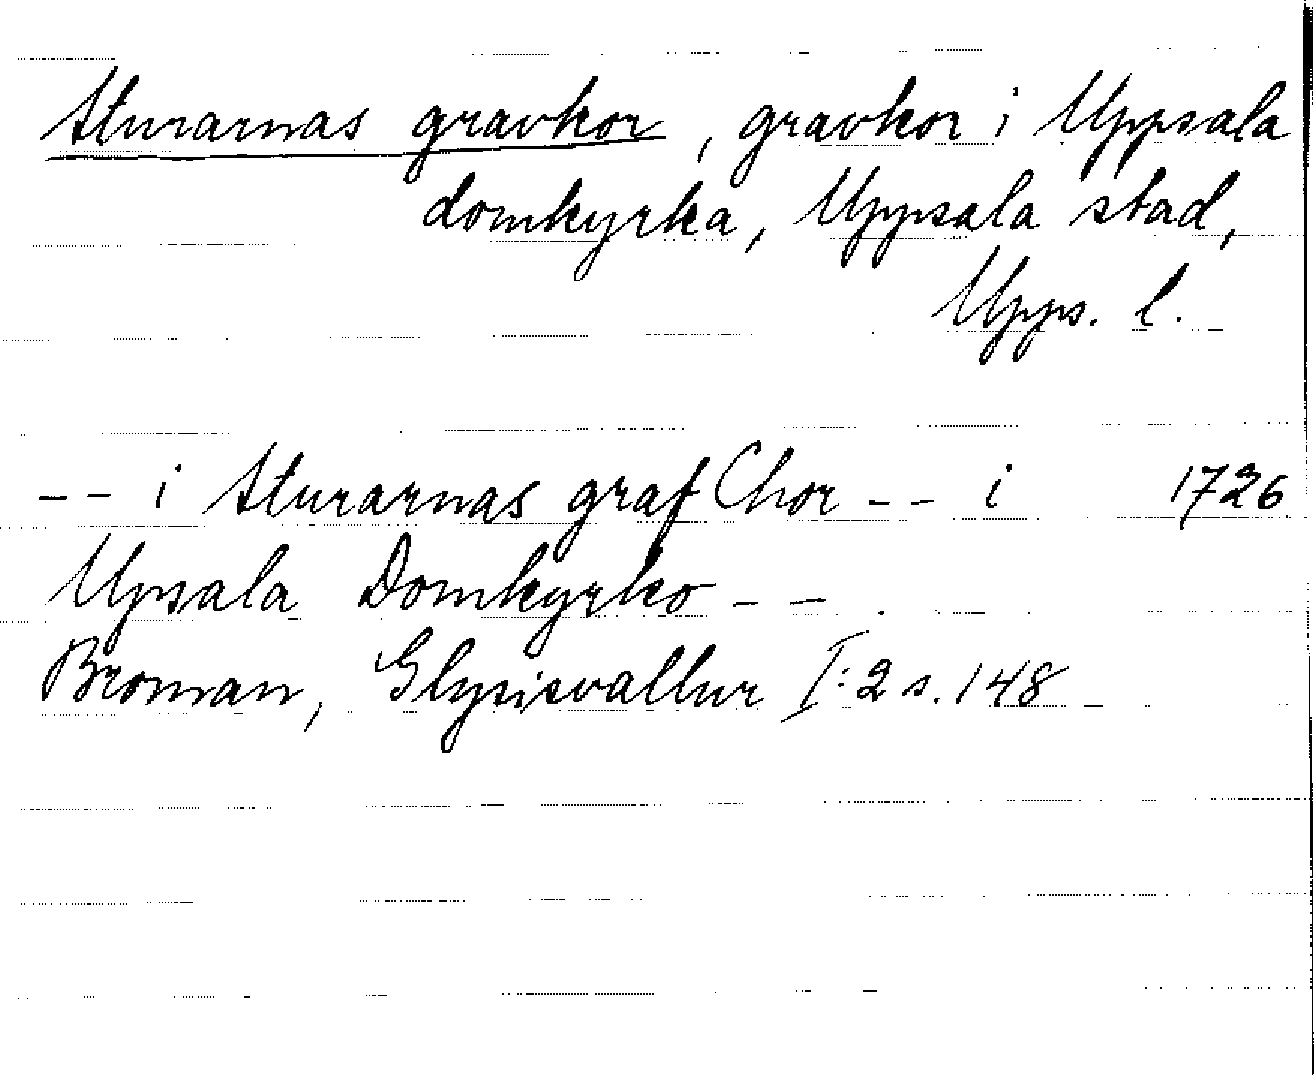 Sturarnas gravkor, gravkor i Uppsala
domkyrka, Uppsala stad,
Upps. l.
-- i Sturarnas graf Chor -- i 1726
Upsala Domkyrko --
Broman, Glysisvallur I:2 s. 148